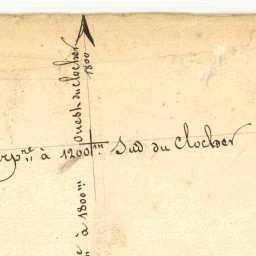 Ouest du clocher
1800
à 1200m Sud du Clocher
à 1800m